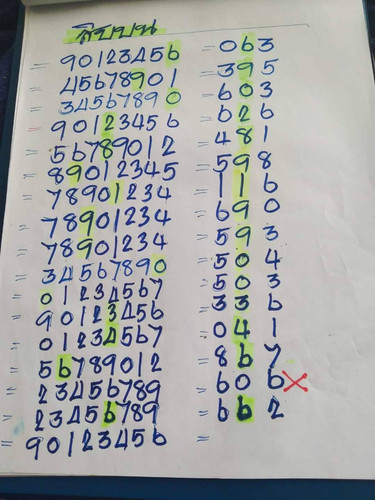 สิบบน
= 90123456 = 063
= 45678901 = 395
= 34567890 = 603
= 90123456 = 626
= 56789012 = 481
= 89012345 = 598
= 78901234 = 116
= 78901234 = 690
= 78901234 = 593
= 34567890 = 504
= 01234567 = 503
= 90123456 = 336
= 01234567 = 041
= 56789012 = 867
= 23456789 = 606 X
= 23456789 = 662
= 90123456 =